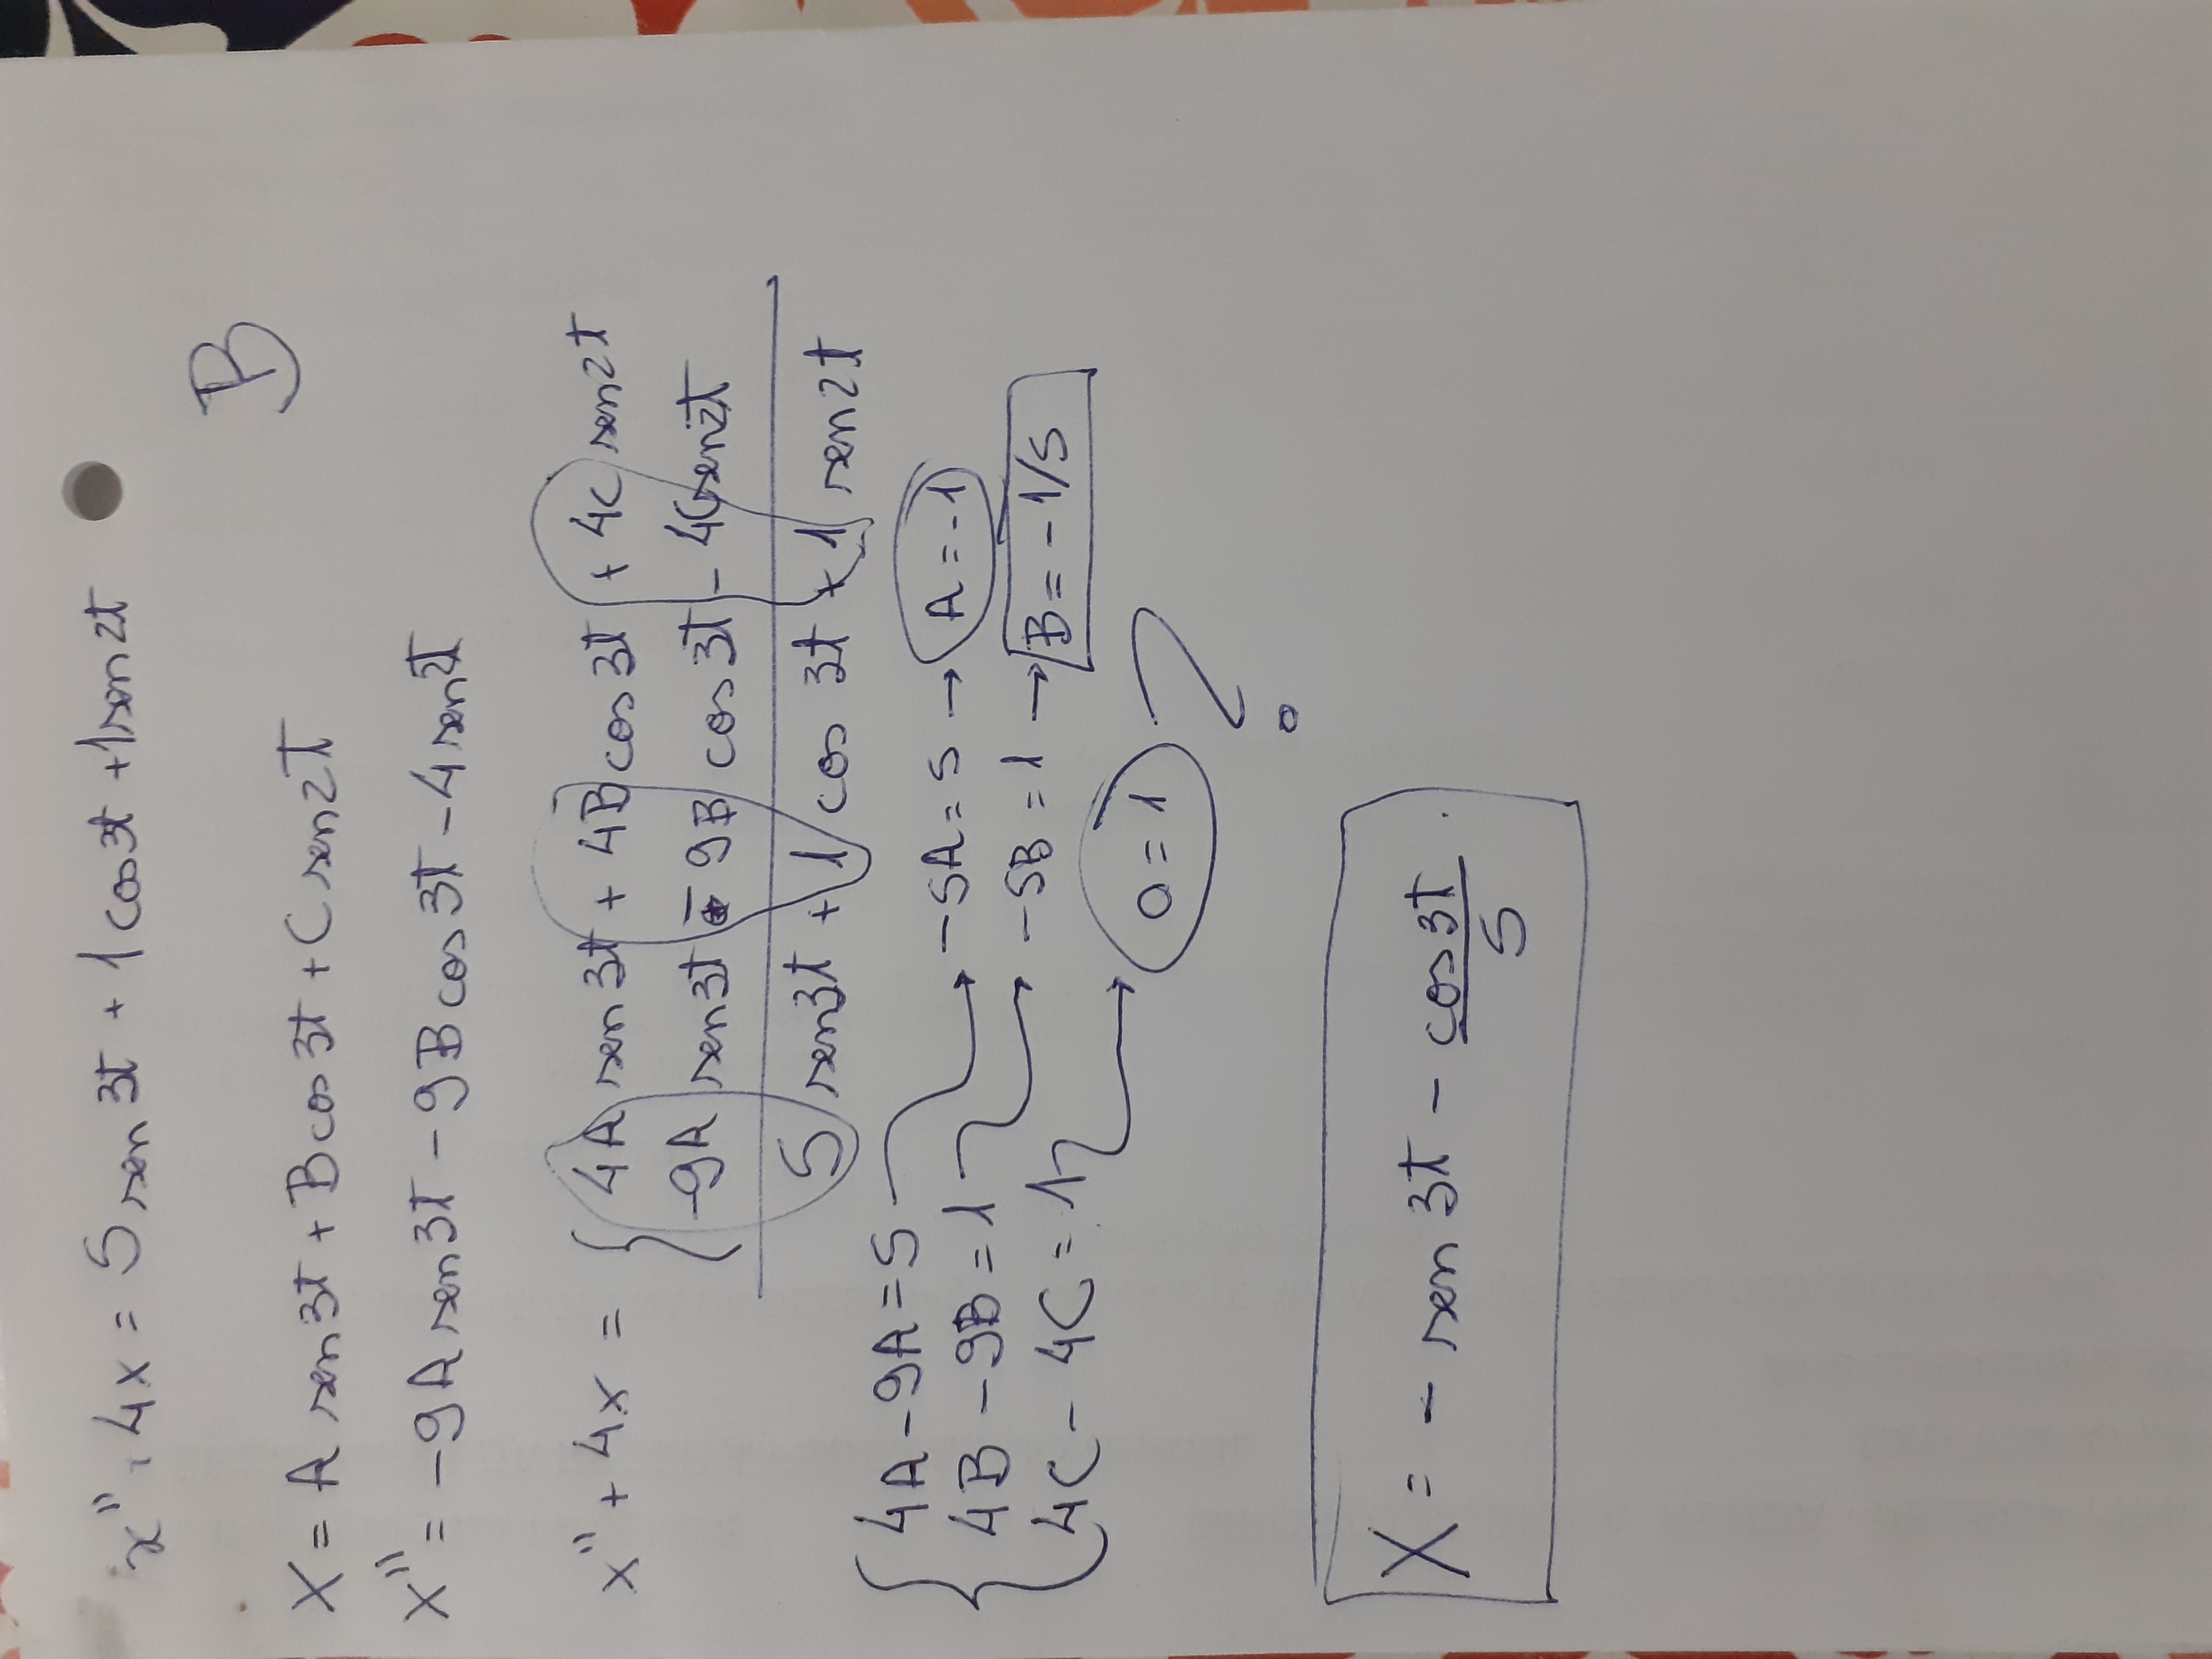 x'' + 4x = 5 sen 3t + 1 cos 3t + 1 sen 2t
B
X = A sen 3t + B cos 3t + C sen 2t
X'' = -9A sen 3t - 9B cos 3t - 4 sen 2t
x'' + 4x = { 4A sen 3t + 4B cos 3t + 4C sen 2t
-9A sen 3t - 9B cos 3t - 4C sen 2t
5 sen 3t + 1 cos 3t + 1 sen 2t
{ 4A - 9A = 5 → -5A = 5 → A = -1
4B - 9B = 1 → -5B = 1 → B = -1/5
4C - 4C = 1 → 0 = 1 ?
X = - sen 3t - cos 3t / 5 .